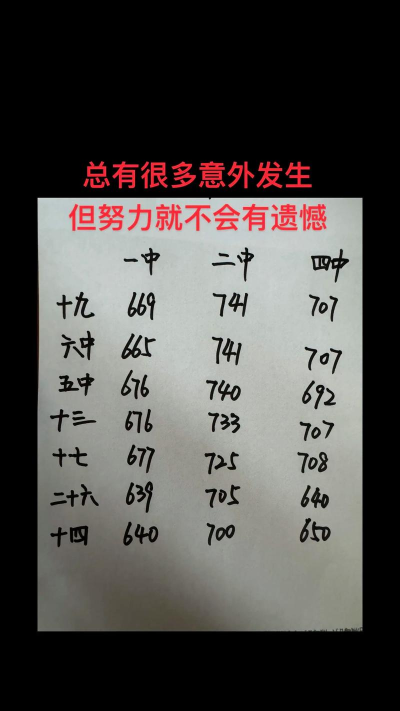 总有很多意外发生
但努力就不会有遗憾
一中 二中 四中
十九 669 741 707
六中 665 741 707
五中 676 740 692
十三 676 733 707
十七 677 725 708
二十六 639 705 640
十四 640 700 650